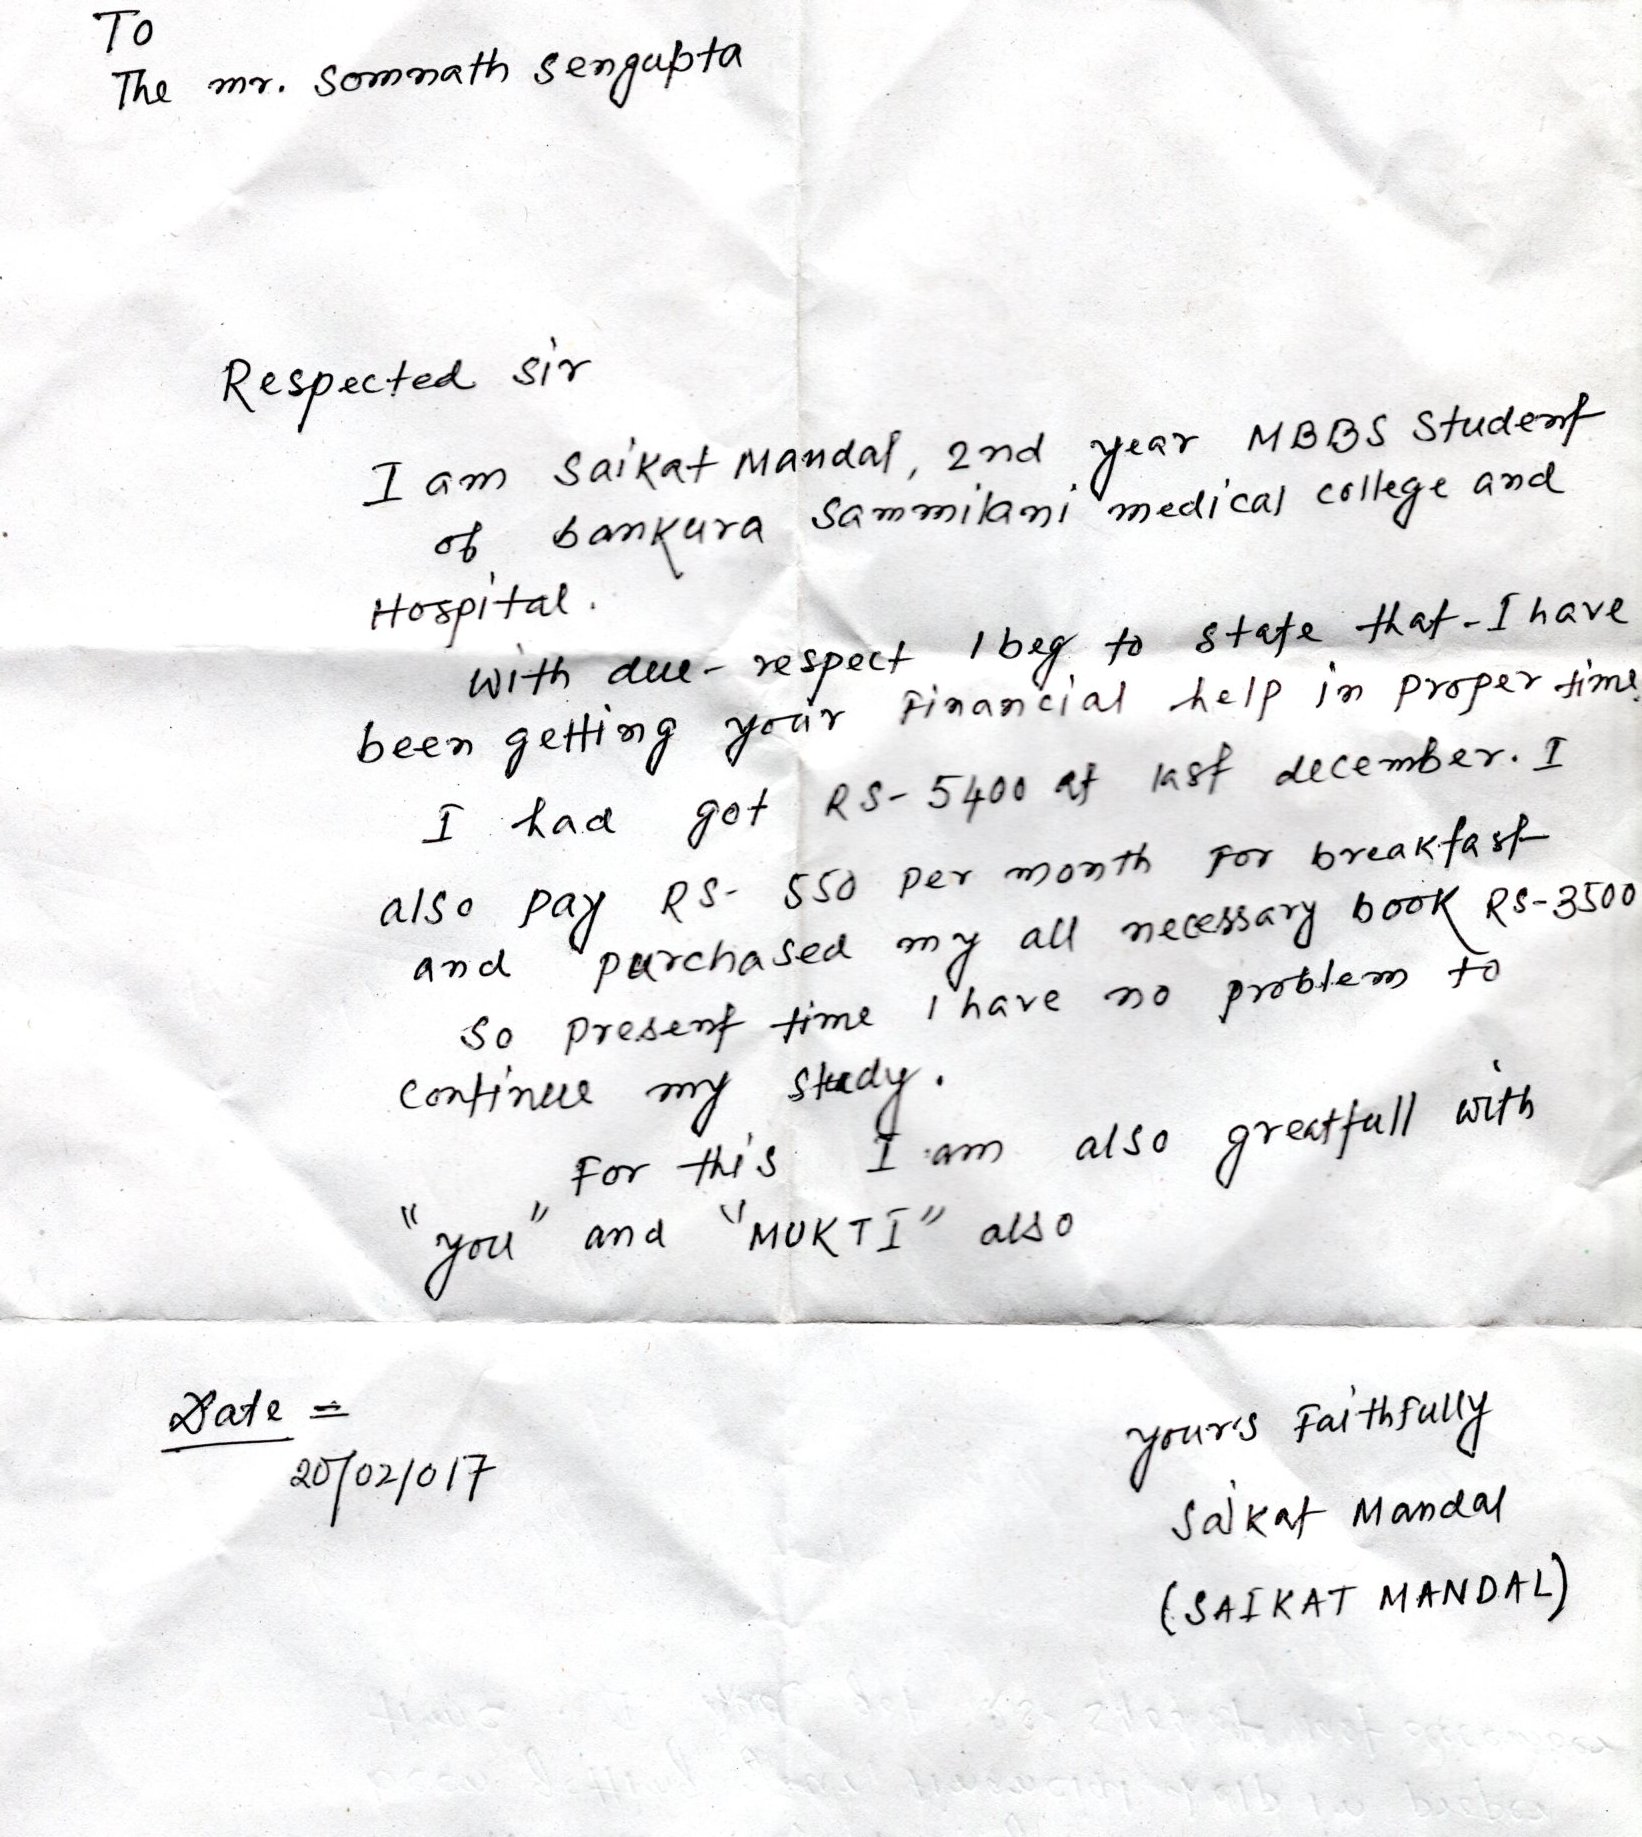 To
The mr. Somnath Sengupta
Respected sir
I am Saikat Mandal, 2nd year MBBS Student
of bankura Sammilani medical college and
Hospital.
with due- respect I beg to state that - I have
been getting your Financial help in proper time.
I had got RS- 5400 at last december. I
also pay RS- 550 per month For breakfast
and purchased my all necessary book RS-3500
So present time I have no problem to
continue my study.
For this I am also greatfull with
"you" and "MUKTI" also
Date =
20/02/017
your's Faithfully
Saikat Mandal
(SAIKAT MANDAL)